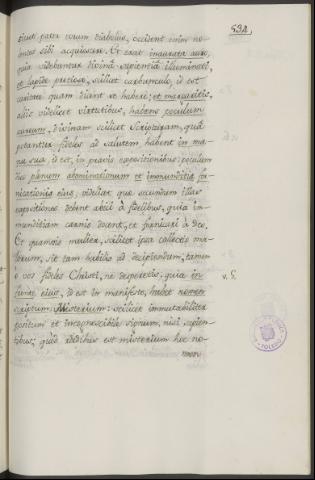 532,
sicuti pater eorum diabolus, occident enim no-
lentes sibi acquiescere. Et erat inaurata auro,
quia videbuntur divinâ sapientiâ illuminari,
et lapide pretioso, scilicet carbunculo, id est
caritate quam dicunt se habere; et margaritis,
aliis videlicet virtutibus, habens poculum
aureum, divinam scilicet Scripturam, quâ
potantur fideles ad salutem, habent in ma-
nu sua, id est, in pravis expositionibus: poculum
dico plenum abominationum et immunditia for-
nicationis eius, videlicet que secundum illas
expositiones debent abici à fidelibus, quia im-
munditiam carnis docent, et fornicari à Deo.
Et quamvis mulier, scilicet ipsa collectio ma-
lorum, sit tam habilis ad decipiendum, tamen
ô vos fideles Christi, ne desperetis, quia in
fronte eius, id est in manifesto, habet nomen
scriptum Misterium: scilicet immutabiliter
positum et incognoscibile signum, nisi sapien-
tibus; quod dicibus est misterium hec no-
men
v. 5.
TOLEDO